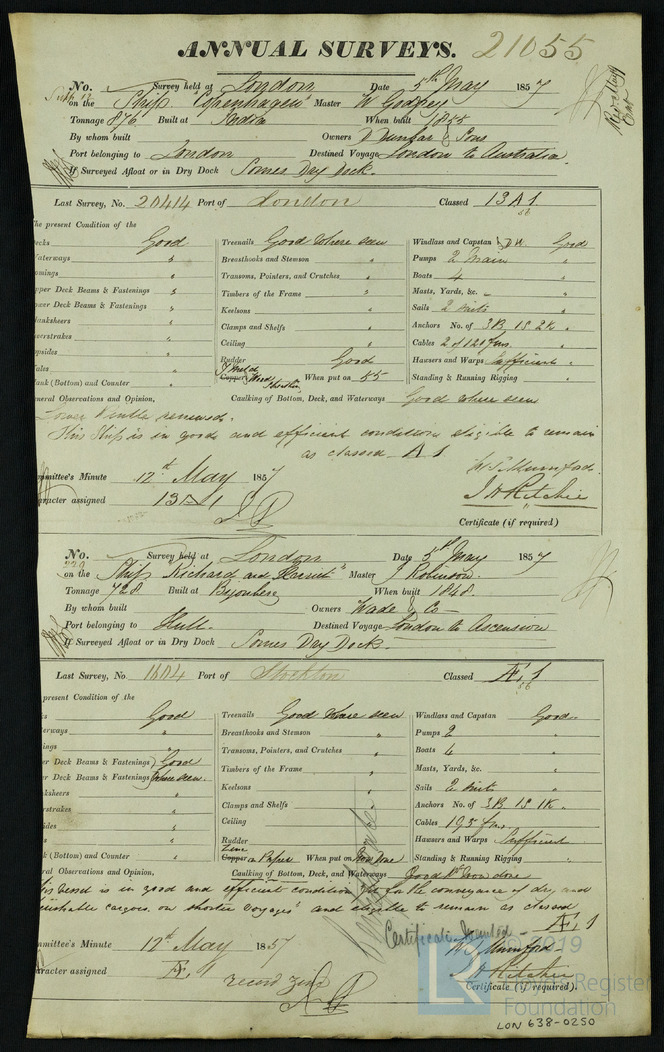 ANNUAL SURVEYS. 21055
No. Survey held at London Date 5th May 1857
on the Ship "Copenhagen" Master W Godfrey
Tonnage 876 Built at India When built 1855
By whom built Owners D Dunbar & Sons
Port belonging to London Destined Voyage London to Australia.
If Surveyed Afloat or in Dry Dock Somes Dry Dock.
Last Survey, No. 20414 Port of London Classed 13 A 1.
56
he present Condition of the
ecks Good Treenails Good where seen Windlass and Capstan Good
Waterways " Breasthooks and Stemson " Pumps 2 Main "
omings " Transoms, Pointers, and Crutches " Boats 4 "
pper Deck Beams & Fastenings " Timbers of the Frame " Masts, Yards, &c. "
ower Deck Beams & Fastenings " Keelsons " Sails 2 suits "
lanksheers " Clamps and Shelfs " Anchors No. of 3B, 1S 2K "
aterstrakes " Ceiling " Cables 2 of 120 fms. "
opsides " Rudder Good Hawsers and Warps Sufficient "
Vales " Y Metal
lank (Bottom) and Counter " Copper When put on 55 Standing & Running Rigging "
eneral Observations and Opinion, Caulking of Bottom, Deck, and Waterways Good where seen
Lower Pintle renewed.
This Ship is in good and efficient condition eligible to remain
as classed A 1
W. T. Mumford.
mmittee's Minute 12th May 1857
aracter assigned 13 A 1 J H Ritchie
Certificate (if required)
No. Survey held at London Date 5th May 1857
on the Ship "Richard and Harriet" Master J Robinson.
Tonnage 728 Built at When built 1848
By whom built Owners Wade & Co
Port belonging to Hull. Destined Voyage London to Ascension
If Surveyed Afloat or in Dry Dock Somes Dry Dock.
Last Survey, No. 1604 Port of Stockton Classed Æ 1
56
present Condition of the
ks Good Treenails Good where seen Windlass and Capstan Good
erways " Breasthooks and Stemson " Pumps 2 "
ings " Transoms, Pointers, and Crutches " Boats 4 "
er Deck Beams & Fastenings Good Timbers of the Frame " Masts, Yards, &c. "
er Deck Beams & Fastenings where seen. Keelsons " Sails 2 suits "
ksheers " Clamps and Shelfs " Anchors No. of 3B 1S 1K "
erstrakes " Ceiling " Cables 195 fms. "
ides " Rudder Hawsers and Warps Sufficient
Zinc
k (Bottom) and Counter " Copper on Paper When put on Now done Standing & Running Rigging "
ral Observations and Opinion, Caulking of Bottom, Deck, and Waterways Good & now done
his Vessel is in good and efficient condition fit for the conveyance of dry and
ishable cargoes on shorter voyages and eligible to remain as classed
Æ 1
Certificate Granted
W. T. Mumford
mmittee's Minute 12th May 1857
aracter assigned Æ 1 J H Ritchie
record Zinc Certificate (if required).
© 2019
Lloyd's Register
Foundation
LR
LON 638-0250